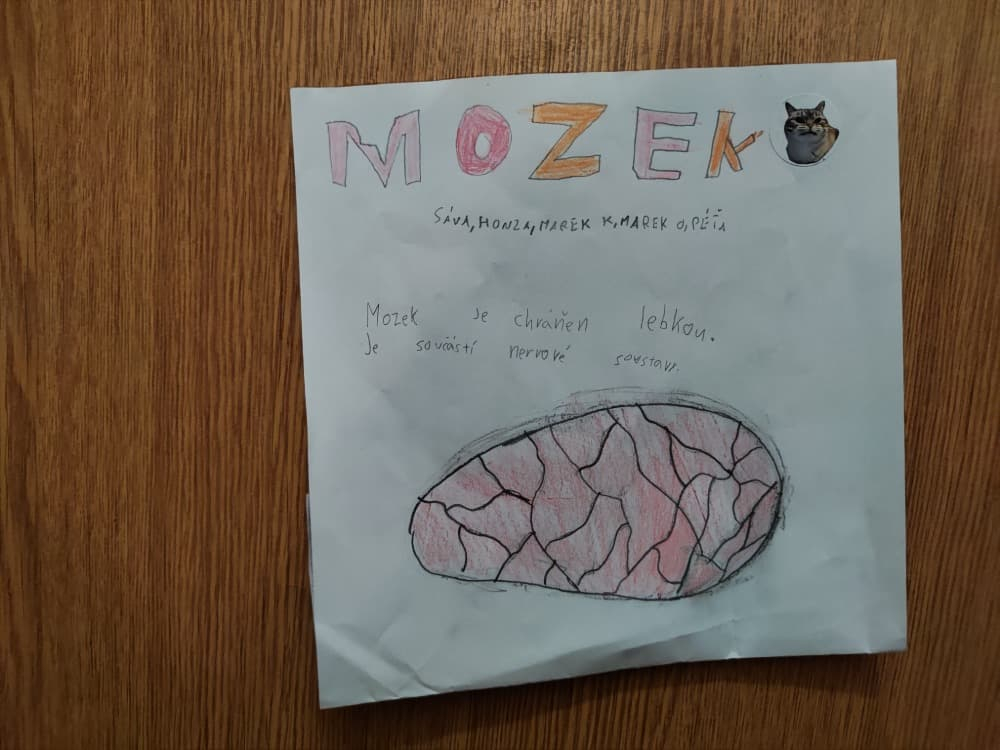 MOZEK
SÁVA, HONZA, MAREK K, MAREK O, PÉŤA
Mozek je chráněn lebkou.
Je součástí nervové soustavy.